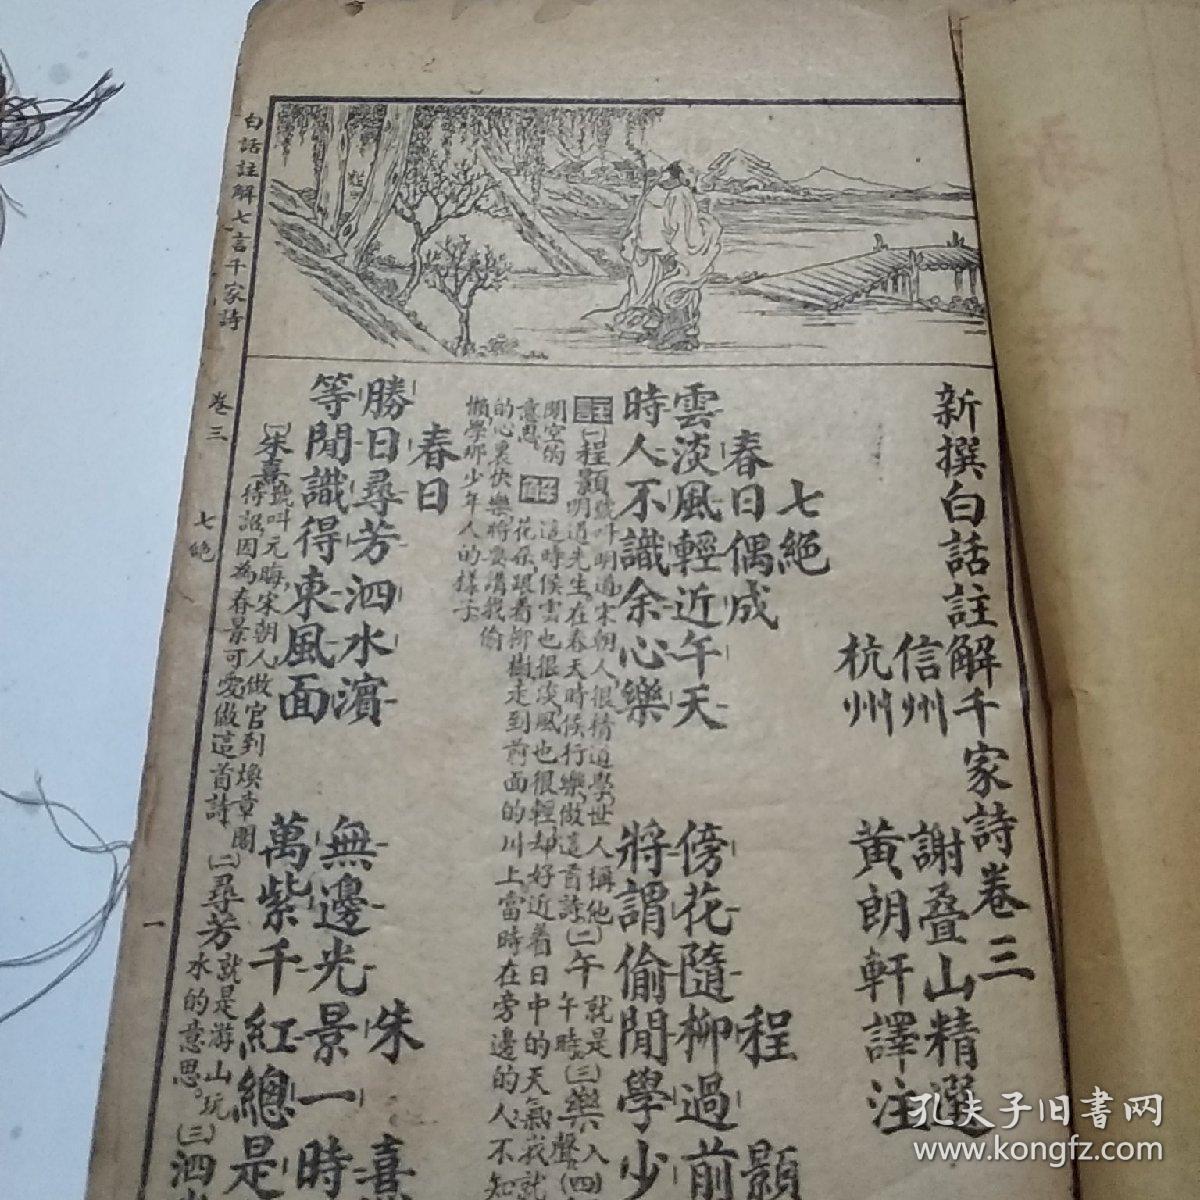 新撰白話註解千家詩卷三
信州　謝疊山精選
杭州　黄朗軒譯注
七絕
春日偶成　程顥
雲淡風輕近午天　傍花隨柳過前
時人不識余心樂　將謂偷閒學少
註(一)程顥號叫明道宋朝人很精道學世人稱他
明道先生在春天時候行樂做這首詩(二)午就是
午時(三)樂聲入(四)
閒空的
意思
解這時候雲也很淡風也很輕却好近着日中的天氣我就
花朵跟着柳樹走到前面的川上當時在旁邊的人不知
的心裏快樂將要謂我偷
懶學那少年人的樣子
春日　朱熹
勝日尋芳泗水濱　無邊光景一時
等閒識得東風面　萬紫千紅總是
(一)朱熹號叫元晦宋朝人做官到煥章閣
待詔因為春景可愛做這首詩(二)尋芳就是游山玩
水的意思。(三)泗水
白話註解七言千家詩　卷三　七絕　一
孔夫子旧书网
www.kongfz.com